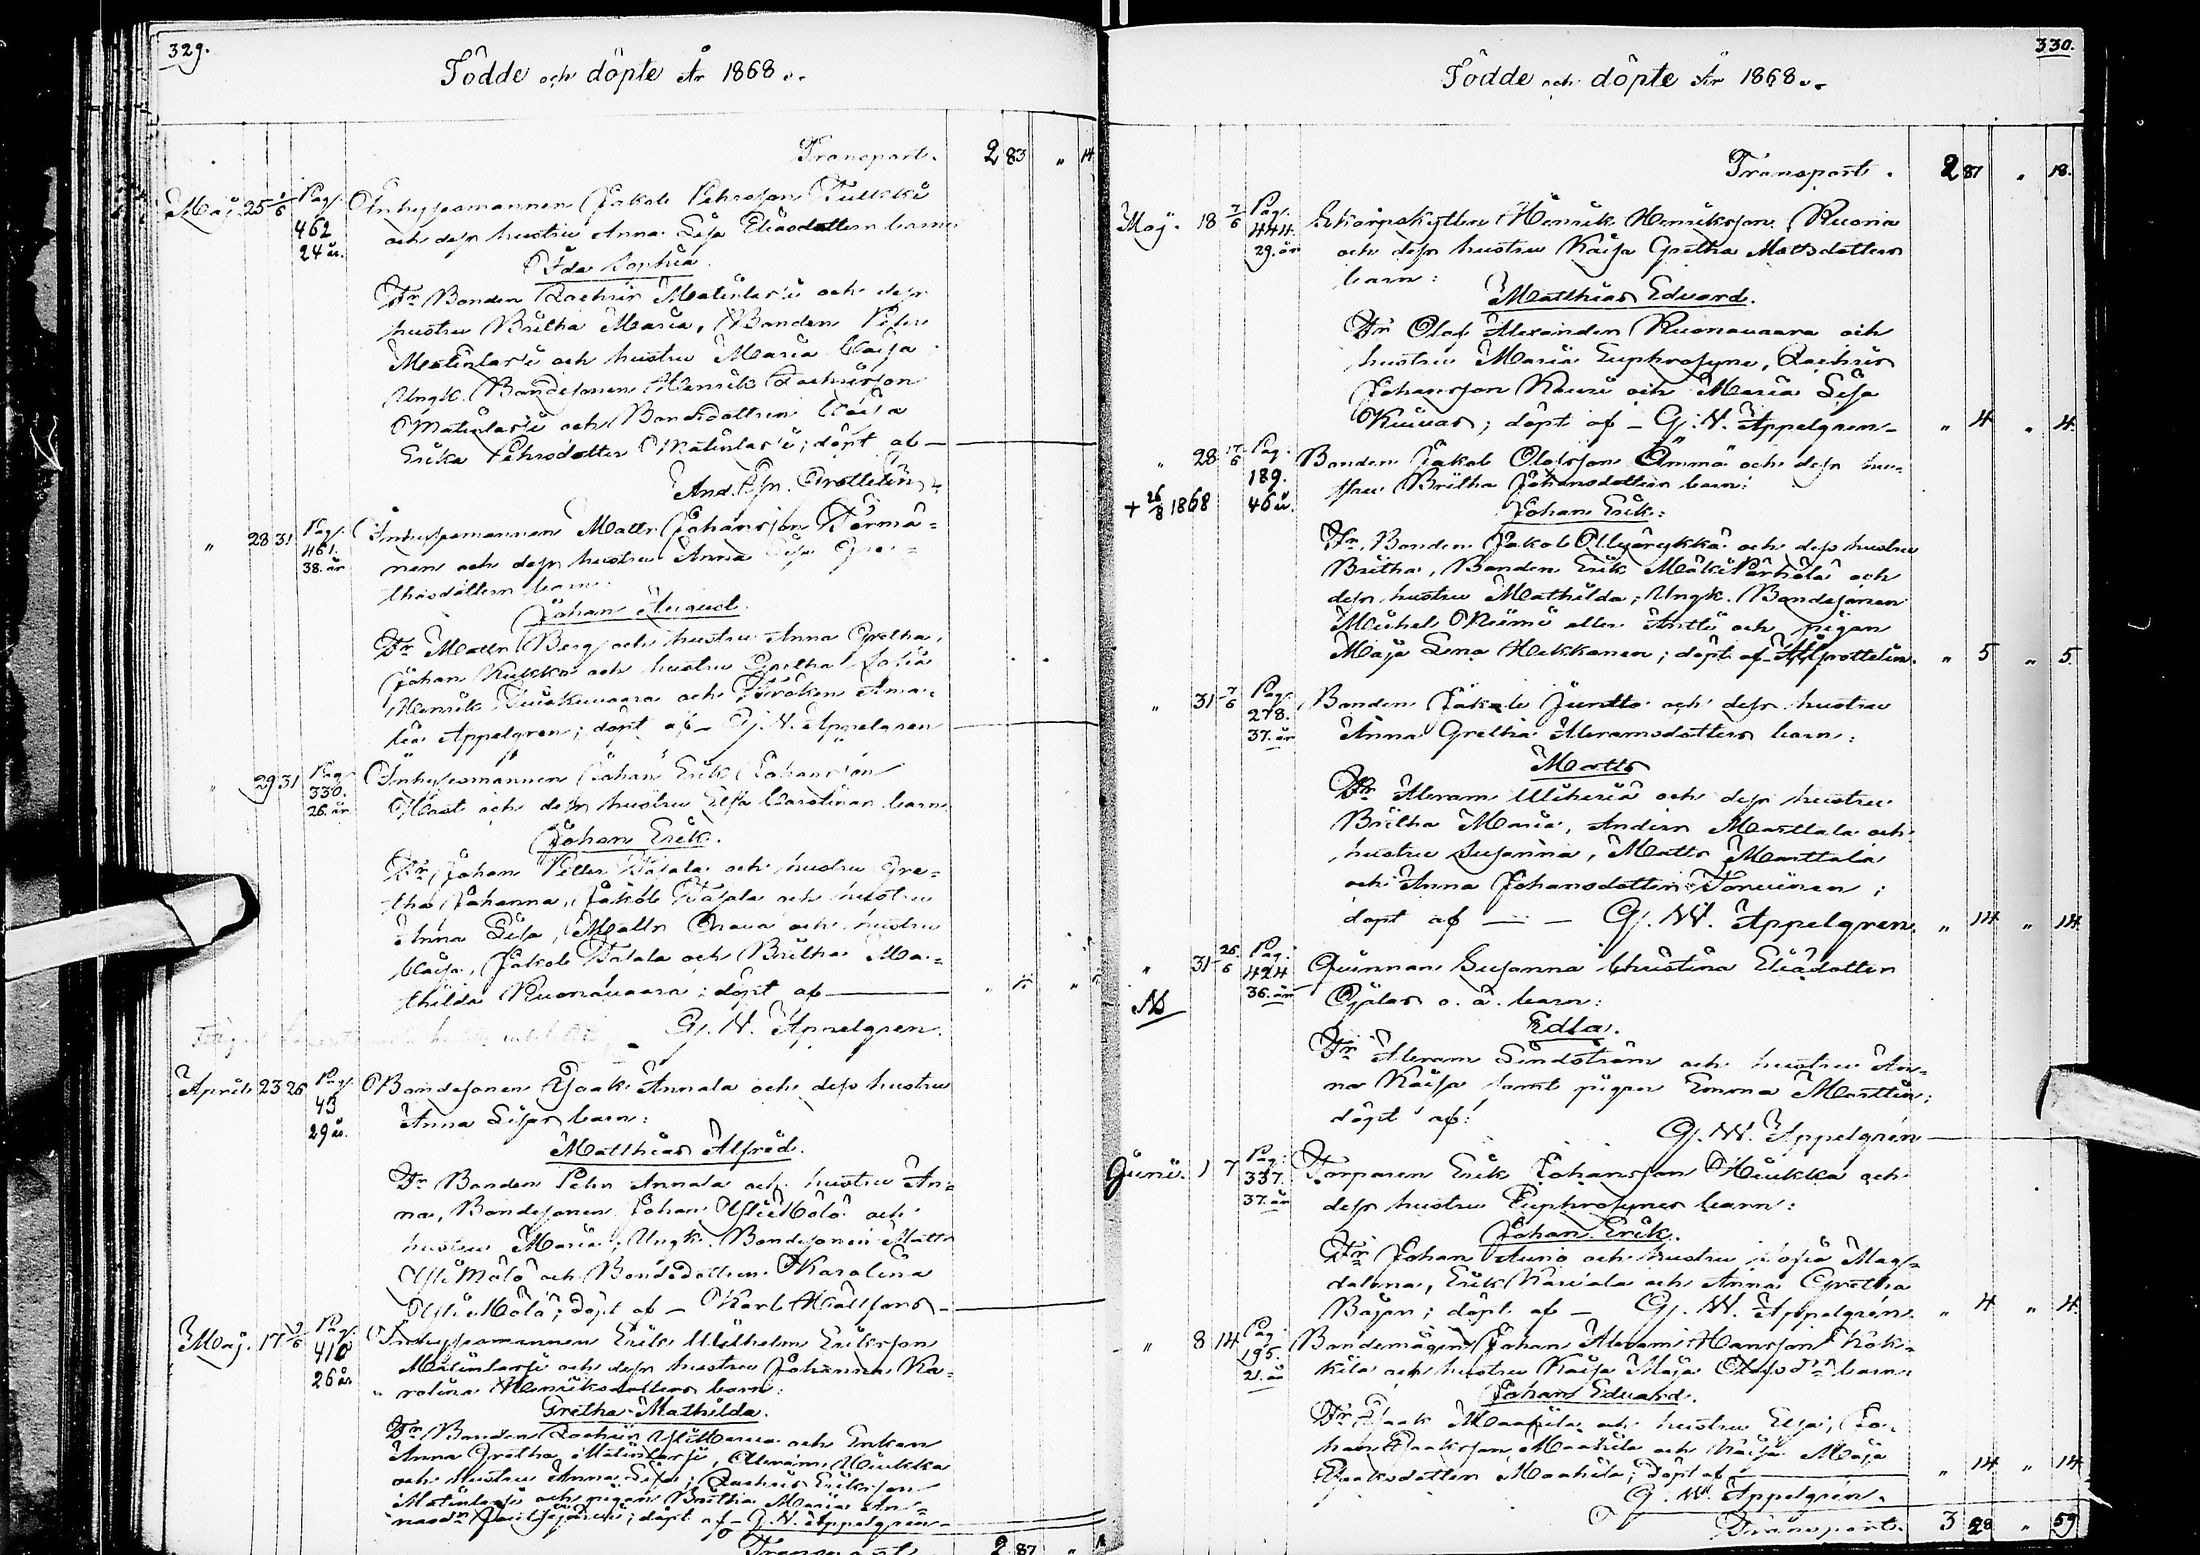 329.
Födde och döpte År 1868.
Transport. 2 83 " 14
Maj 25 1/6 Pag. 462 24 år. Inhysesmannen Jakob Pehrsson Pulkki
och dess hustru Anna Lisa Eliaedotters barn
Ida Sophia.
Fr. Bonden Zachris Matinlassi och dess
hustru Britha Maria, Bonden Peter
Matinlassi och hustru Maria Caisa
Ungk. Bondesonen Henrik Zachrisson
Matinlassi och Bondedottren Caisa
Erika Pehrsdotter Matinlassi; döpt af —
And. Joh. Frosterus
" 28 31 Pag. 461. 38. år Inhysesmannen Matts Johansson Törmä-
nen och dess hustru Anna Lisa
thiasdotters barn:
Johan August.
Fr. Matts Berg och hustru Anna Gretha,
Johan Kukko och hustru Gretha Sofia
Henrik och Fröken Ama-
lia Appelgren; döpt af — Gj. W. Appelgren
" 29 31 Pag. 330. 26. år Inhysesmannen Johan Erik Johansson
och dess hustru Elsa Carolinas barn
Johan Erik.
Fr. Johan Petter Tapala och hustru Gre-
tha Johanna, Jakob Tapala och hustru
Anna Lisa, Matts och hustru
Caisa, Jakob Tapala och Britha Ma-
thilda Ruonavaara; döpt af —
Gj. W. Appelgren.
April 23 26 Pag. 45 29 år. Bondesonen Isaak Annala och dess hustru
Anna Lisas barn:
Matthias Alfred.
Fr. Bonden Pehr Annala och hustru An-
na, Bondesonen Johan YliMölö och
hustru Maria; Ungk. Bondesonen Matts
YliMölö och Bondedottren Karolina
YliMölö; döpt af — Karl Hällfors
Maj. 17 7/6 Pag. 410 26 år Inhysesmannen Erik Wilhelm Eriksson
Matinlassi och dess hustru Johanna Ka-
rolina Henriksdotters barn:
Gretha Mathilda.
Fr. Bonden Zachris och Enkan
Anna Gretha Matinlassi, Abram Hiukka
och hustru Anna Lisa; Zachris Eriksson
Matinlassi och pigan Britha Maria An-
; döpt af — G. W. Appelgren
Transport. 2 87 "
330.
Födde och döpte År 1868.
Transport. 2 87 " 18.
Maj. 18 7/6 Pag. 444. 29. år Skarpskytten Henrik Henriksson Ruona
och dess hustru Kaisa Gretha Mattsdotters
barn:
Matthias Eduard.
Fr. Olof Alexander Ruonavaara och
hustru Maria Euphrosyne, Zachris
Johansson Kauri och Maria Lisa
Kuivas; döpt af — Gj. W. Appelgren " 4 " 4.
" 28 17/6 Pag. 189. 46 år. Bonden Jakob Olofsson Ämmä och dess hu-
stru Britha Johansdotters barn:
+ 26/8 1868
Johan Erik:
Fr. Bonden Jakob och dess hustru
Britha, Bonden Erik och
dess hustru Mathilda; Ungk. Bondesonen
Michel Niemi eller Antti och pigan
Maja Lena Hekkanen; döpt af " 5 " 5.
" 31 7/6 Pag. 278. 37. år Bonden Jakob Juntto och dess hustru
Anna Gretha Abramsdotters barn:
Matts
Fr. Abram Uliheria och dess hustru
Britha Maria, Anders Marttala och
hustru Susanna, Matts Marttala
och Anna Johansdotter Torvinen;
döpt af — — Gj. W. Appelgren. " 14 " 14.
" 31 26/6 Pag. 424 36. år Qvinnan Susanna Christina Eliædotter
Ojalas o. ä. barn:
Edla.
Fr. Abram Lindström och hustru An-
na Kaisa samt pigan Emma Marttin;
döpt af:
Gj. W. Appelgren
Juni. 1 7 Pag. 337. 37. år Torparen Erik Johansson Hiukka och
dess hustru Euphrosynes barn:
Johan Erik.
Fr. Johan Aunio och hustru Sofia Mag-
dalena, Erik Kariala och Anna Gretha
Bajan; döpt af — Gj. W. Appelgren. " 4 " 4.
" 8 14 Pag. 195. 21. år Bondemågen Johan Abram Hansson Kok-
kila och hustru Kaisa Maja Olofsdrs barn:
Johan Eduard.
Fr. Isaak Maahila och hustru Elsa, Jo-
han Isaksson Maahila och Kaisa Maja
Isaksdotter Maahila; döpt af — " 14 " 14
G. W. Appelgren.
Transport. 3 28 " 59